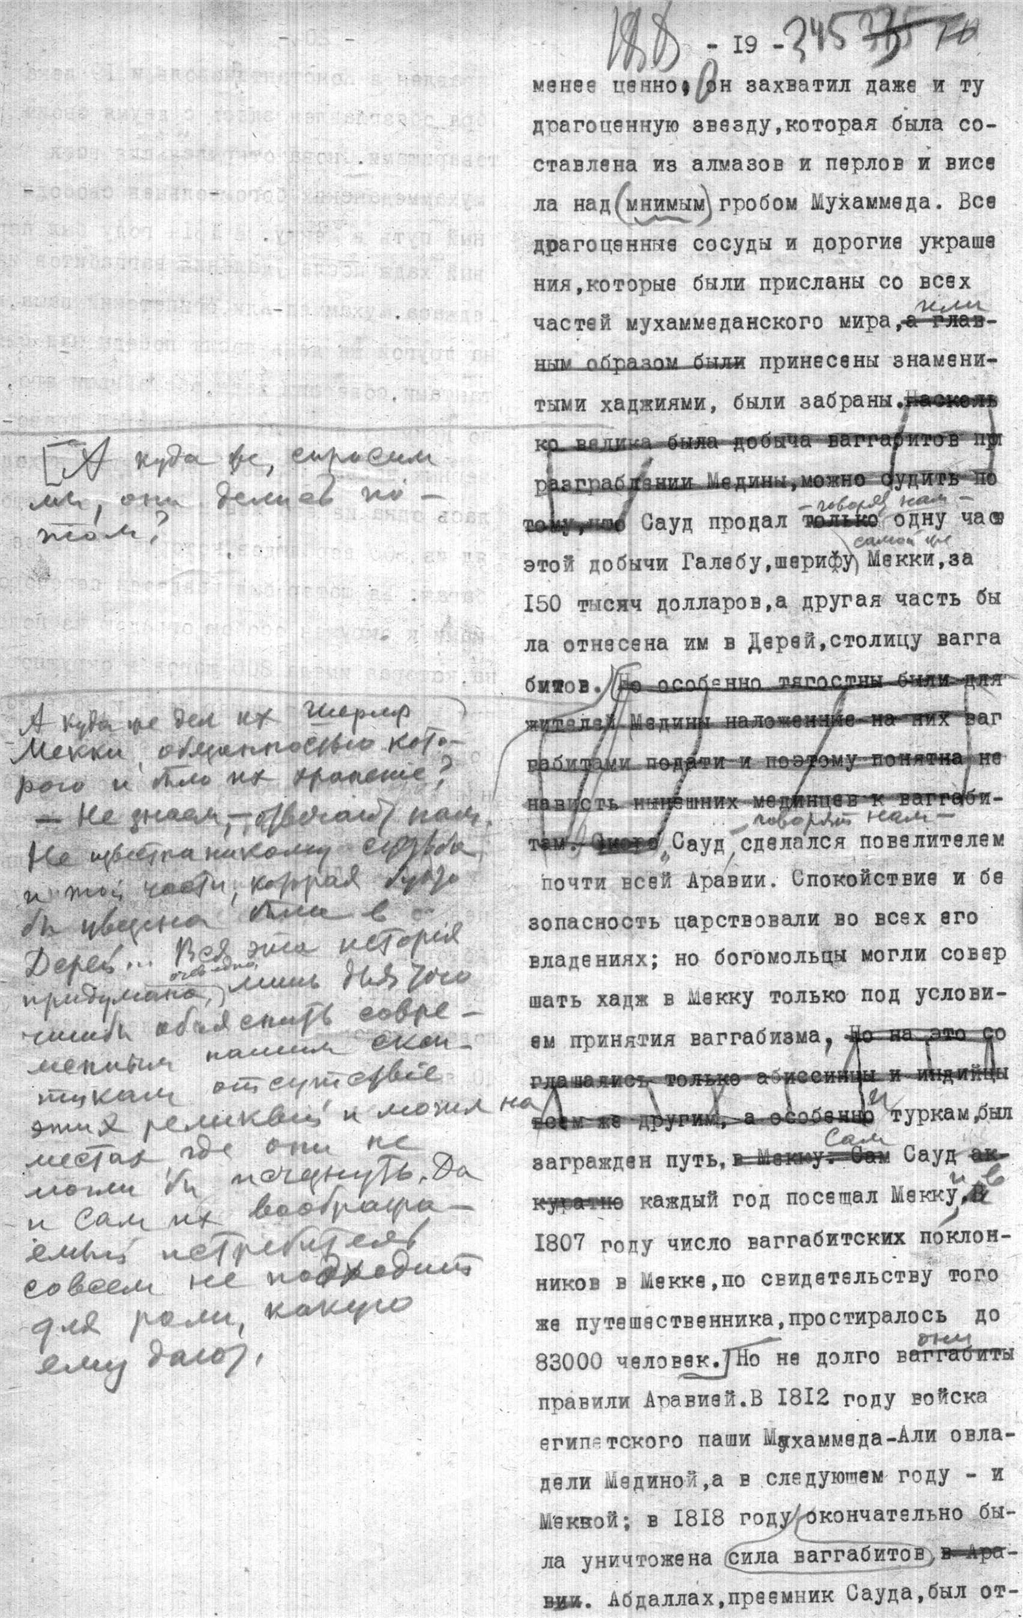 188 - 19 - 345
менее ценно. Он захватил даже и ту
драгоценную звезду,которая была со-
ставлена из алмазов и перлов и висе
ла над (мнимым) гробом Мухаммеда. Все
драгоценные сосуды и дорогие украше
ния,которые были присланы со всех
или
частей мухаммеданского мира,а глав-
ным образом были принесены знамени-
тыми хаджиями, были забраны.Насколь
ко велика была добыча ваггабитов при
разграблении Медины,можно судить по
— говорят нам —
тому,что Сауд продал только одну част
самой же
этой добычи Галебу,шерифу Мекки,за
150 тысяч долларов,а другая часть бы
ла отнесена им в Дерей,столицу вагга
битов. Но особенно тягостны были для
жителей Медины наложенные на них ваг
габитами подати и поэтому понятна не
нависть нынешних мединцев к ваггаби-
— говорят нам —
там. Сауд сделался повелителем
почти всей Аравии. Спокойствие и бе
зопасность царствовали во всех его
владениях; но богомольцы могли совер
шать хадж в Мекку только под услови-
ем принятия ваггабизма, Но на это со
глашались только абиссинцы и индийцы
и
всем же другим, а особенно туркам,был
Сам
загражден путь,в Мекку. Сам Сауд ак-
и в
куратно каждый год посещал Мекку, В
1807 году число ваггабитских поклон-
ников в Мекке,по свидетельству того
же путешественника,простиралось до
они
83000 человек. Но не долго ваггабиты
правили Аравией.В 1812 году войска
египетского паши Мухаммеда-Али овла-
дели Мединой,а в следующем году - и
Меккой; в 1818 году окончательно бы-
ла уничтожена сила ваггабитов в Ара-
вии. Абдаллах,преемник Сауда,был от-
[А куда же, спросим
мы, они делись по-
том?
А куда же дел их шериф
Мекки, обязанностью кото-
рого и было их хранение?
— Не знаем, — отвечают нам.
Не известна никому судьба
и той части, которая будто
бы увезена была в
Дерей... Вся эта история
очевидно,
придумана, лишь для того
чтобы объяснить совре-
менным нашим скеп-
тикам отсутствие
этих реликвий и могил на
местах где они не
могли бы исчезнуть. Да
и сам их воображa-
емый истребитель
совсем не подходит
для роли, какую
ему дают.